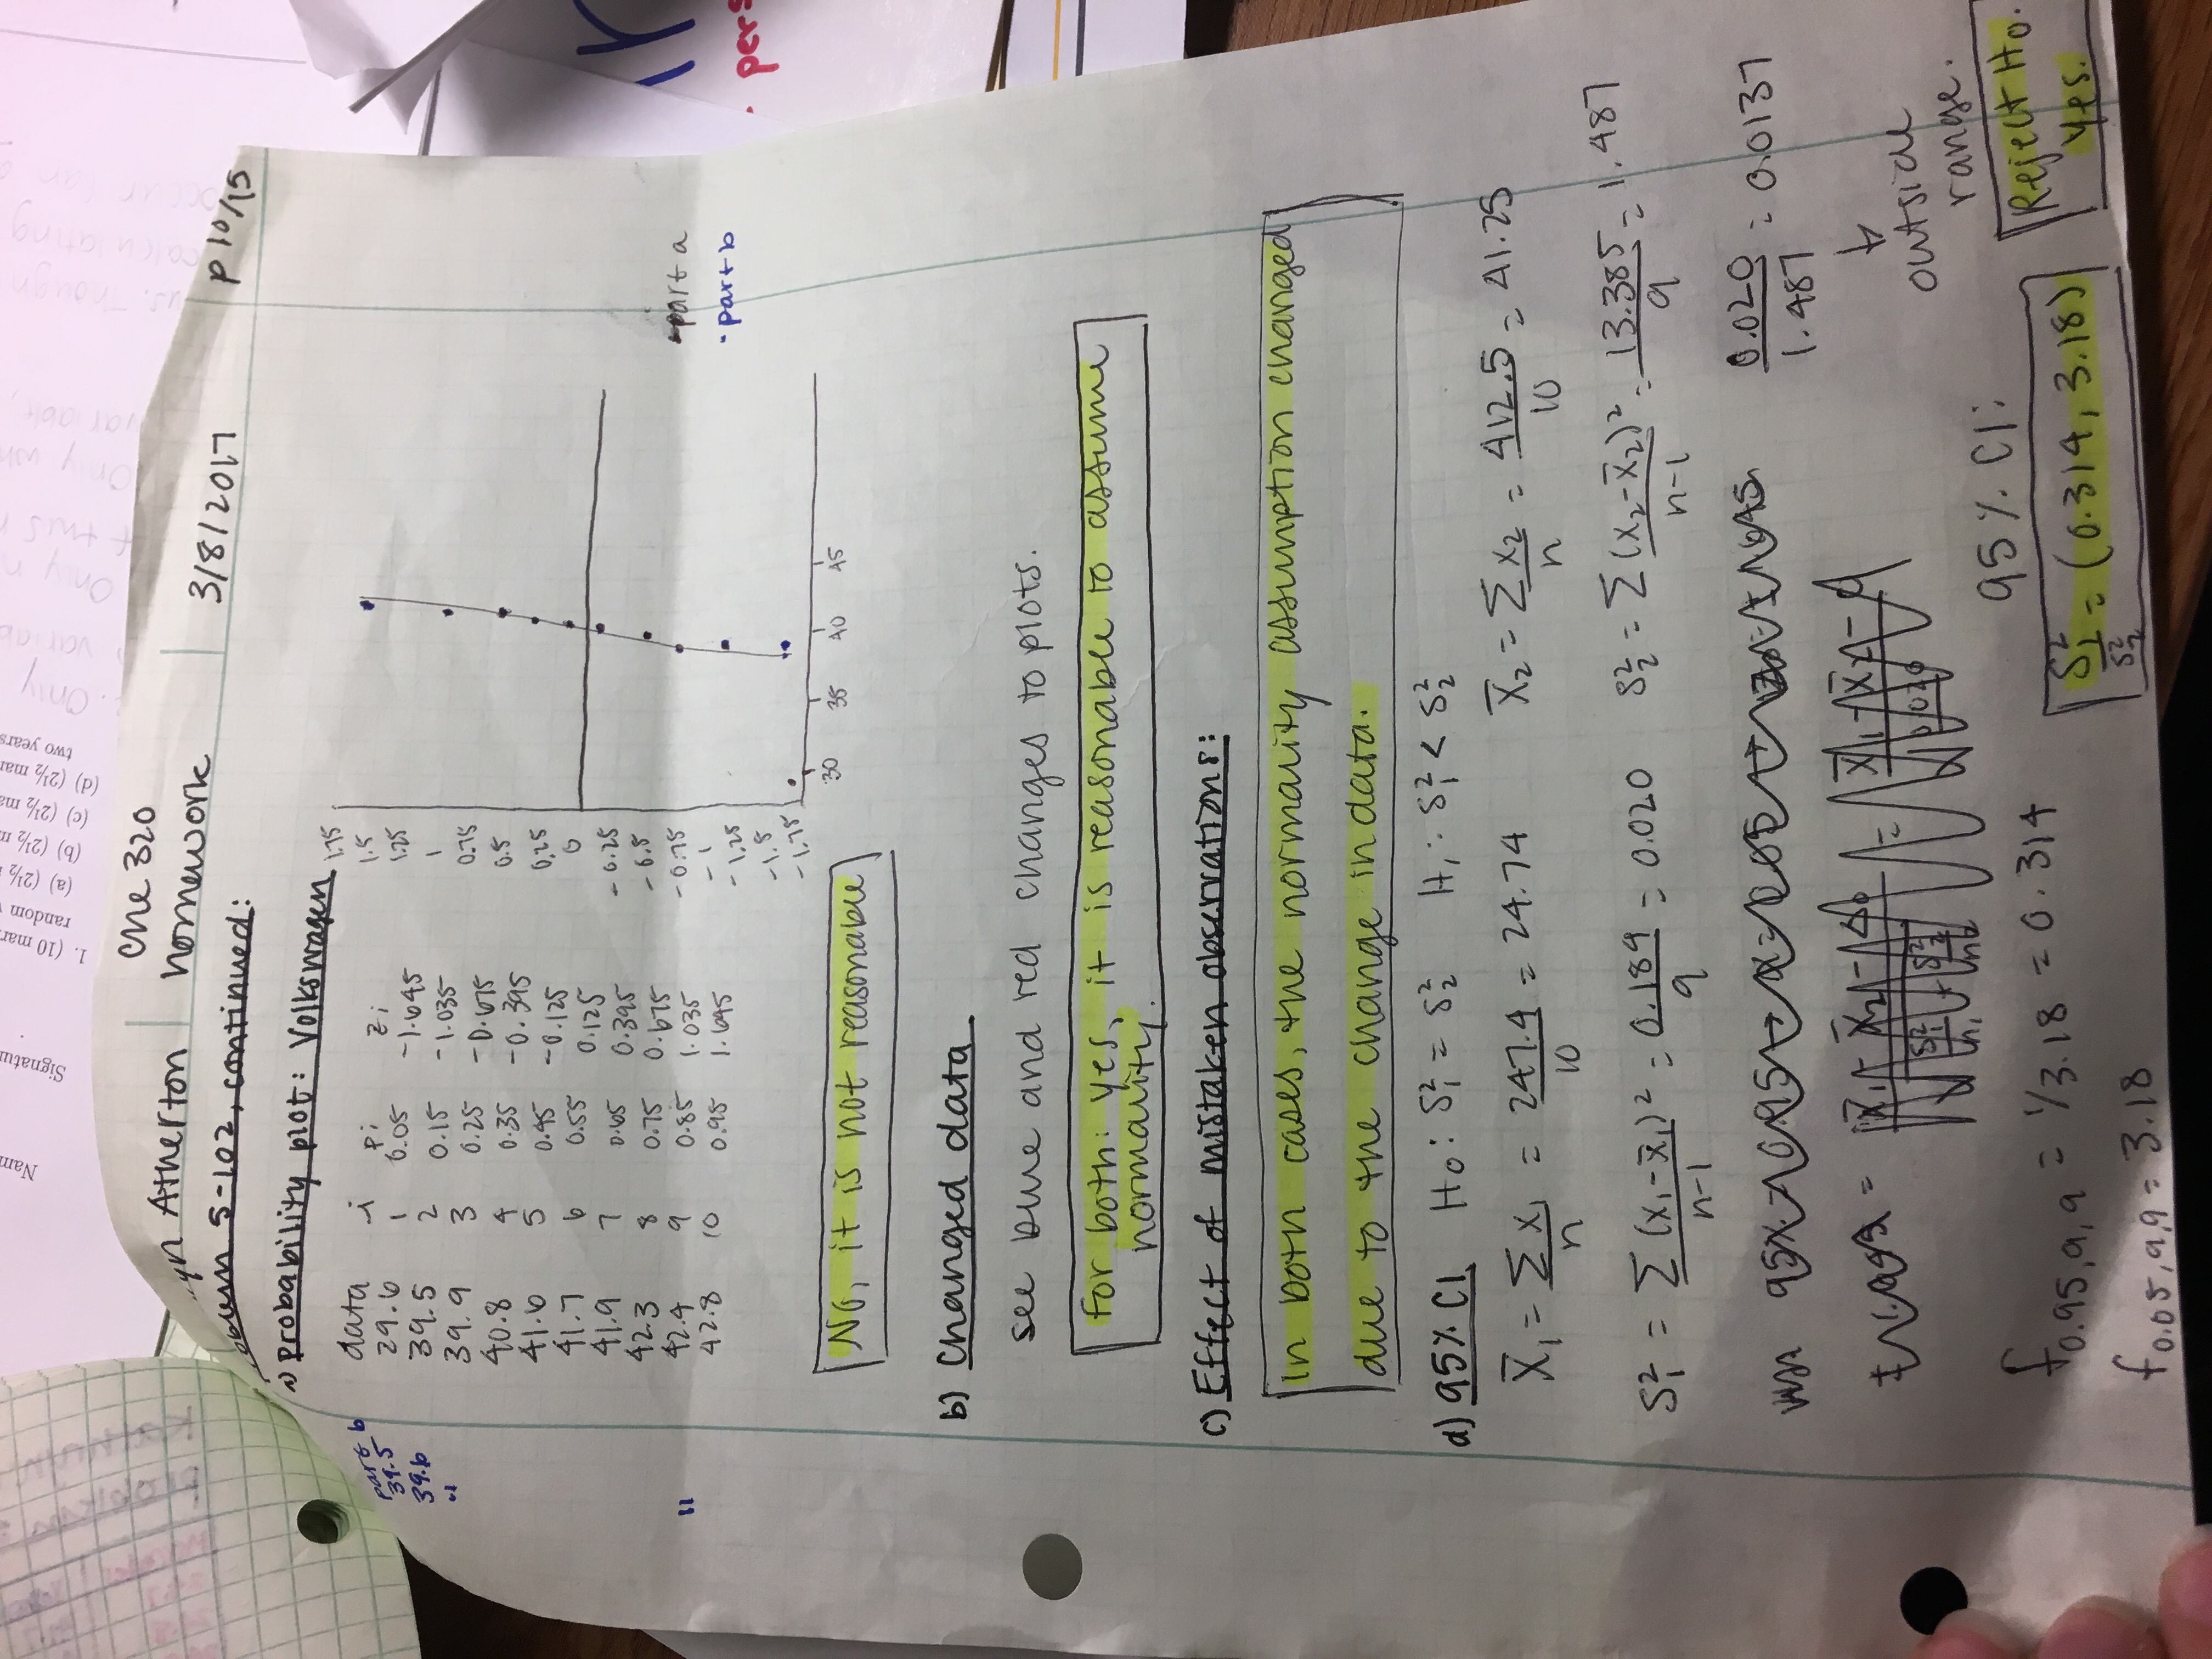 Nam
Signatu
1. (10 mar
random v
(a) (2½ m
(b) (2½ m
(c) (2½ ma
(d) (2½ mar
two years
Only
variab
Only n
f this
Only wh
variable,
us. Though
calculating
occur
che 320
yn Atherton homework 3/8/2017 p 10/15
oblem 5-102, continued:
a) probability plot: Volkswagen
part b data i pi zi
39.5 29.6 1 0.05 -1.645
39.6 39.5 2 0.15 -1.035
" 39.9 3 0.25 -0.675
40.8 4 0.35 -0.395
41.6 5 0.45 -0.125
41.7 6 0.55 0.125
41.9 7 0.65 0.395
42.3 8 0.75 0.675
" 42.4 9 0.85 1.035
42.8 10 0.95 1.645
1.75
1.5
1.25
1
0.75
0.5
0.25
0
-0.25
-0.5
-0.75
-1
-1.25
-1.5
-1.75
30 35 40 45
part a
part b
pers
No, it is not reasonable
b) Changed data
see blue and red changes to plots.
for both: yes, it is reasonable to assume
normality.
c) Effect of mistaken observations:
In both cases, the normality assumption changed
due to the change in data.
d) 95% CI H₀: S₁² = S₂² H₁: S₁² < S₂²
X̄₁ = Σx₁/n = 247.4/10 = 24.74 X̄₂ = Σx₂/n = 412.5/10 = 41.25
S₁² = Σ(x₁-x̄₁)²/n-1 = 0.189/9 = 0.020 S₂² = Σ(x₂-x̄₂)²/n-1 = 13.385/9 = 1.487
0.020/1.487 = 0.0137
↓
outside
range.
f0.95,9,9 = 1/3.18 = 0.314
95% CI:
S₁²/S₂² = (0.314, 3.18)
Reject H₀.
Yes.
f0.05,9,9 = 3.18